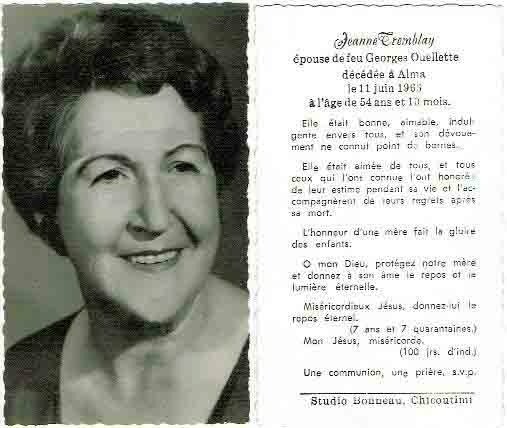 Jeanne Tremblay
épouse de feu Georges Ouellette
décédée à Alma
le 11 juin 1963
à l'âge de 54 ans et 10 mois.
Elle était bonne, aimable, indul-
gente envers tous, et son dévoue-
ment ne connut point de bornes.
Elle était aimée de tous, et tous
ceux qui l'ont connue l'ont honorée
de leur estime pendant sa vie et l'ac-
compagnèrent de leurs regrets après
sa mort.
L'honneur d'une mère fait la gloire
des enfants.
O mon Dieu, protégez notre mère
et donnez à son âme le repos et la
lumière éternelle.
Miséricordieux Jésus, donnez-lui le
repos éternel.
(7 ans et 7 quarantaines.)
Mon Jésus, miséricorde.
(100 jrs. d'ind.)
Une communion, une prière, s.v.p.
Studio Bonneau, Chicoutimi